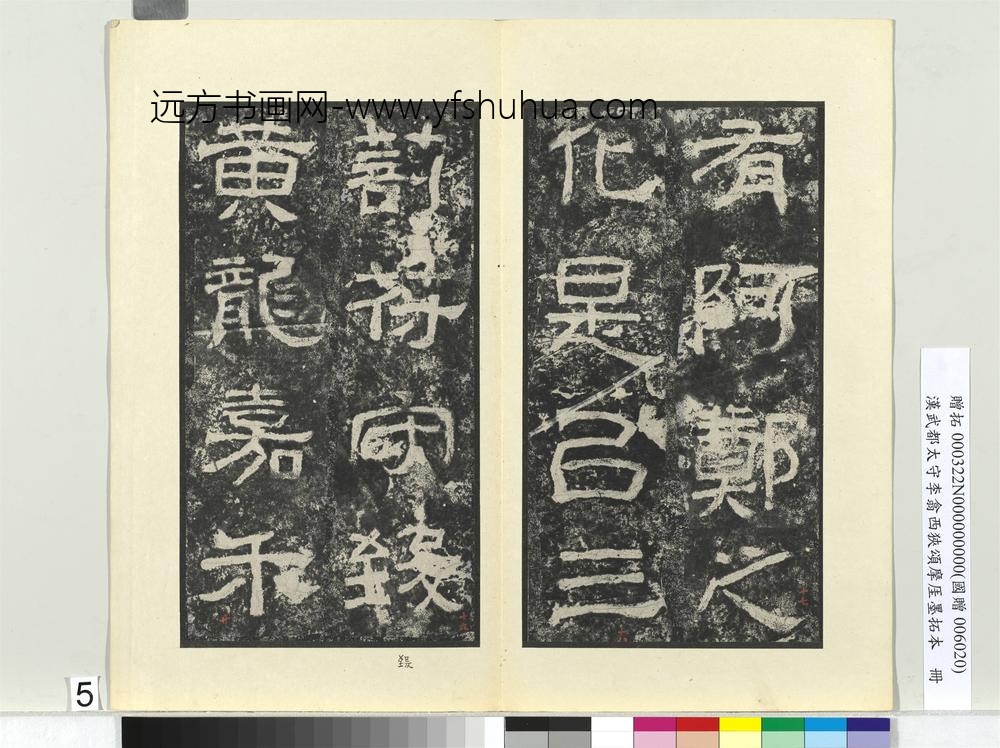 远方书画网-www.yfshuhua.com
有阿鄭之
化是吕三
剖符守致
黄龍嘉禾
致
贈拓 000322N000000000(國贈 006020)
漢武都太守李翕西狹頌摩厓墨拓本 冊
5